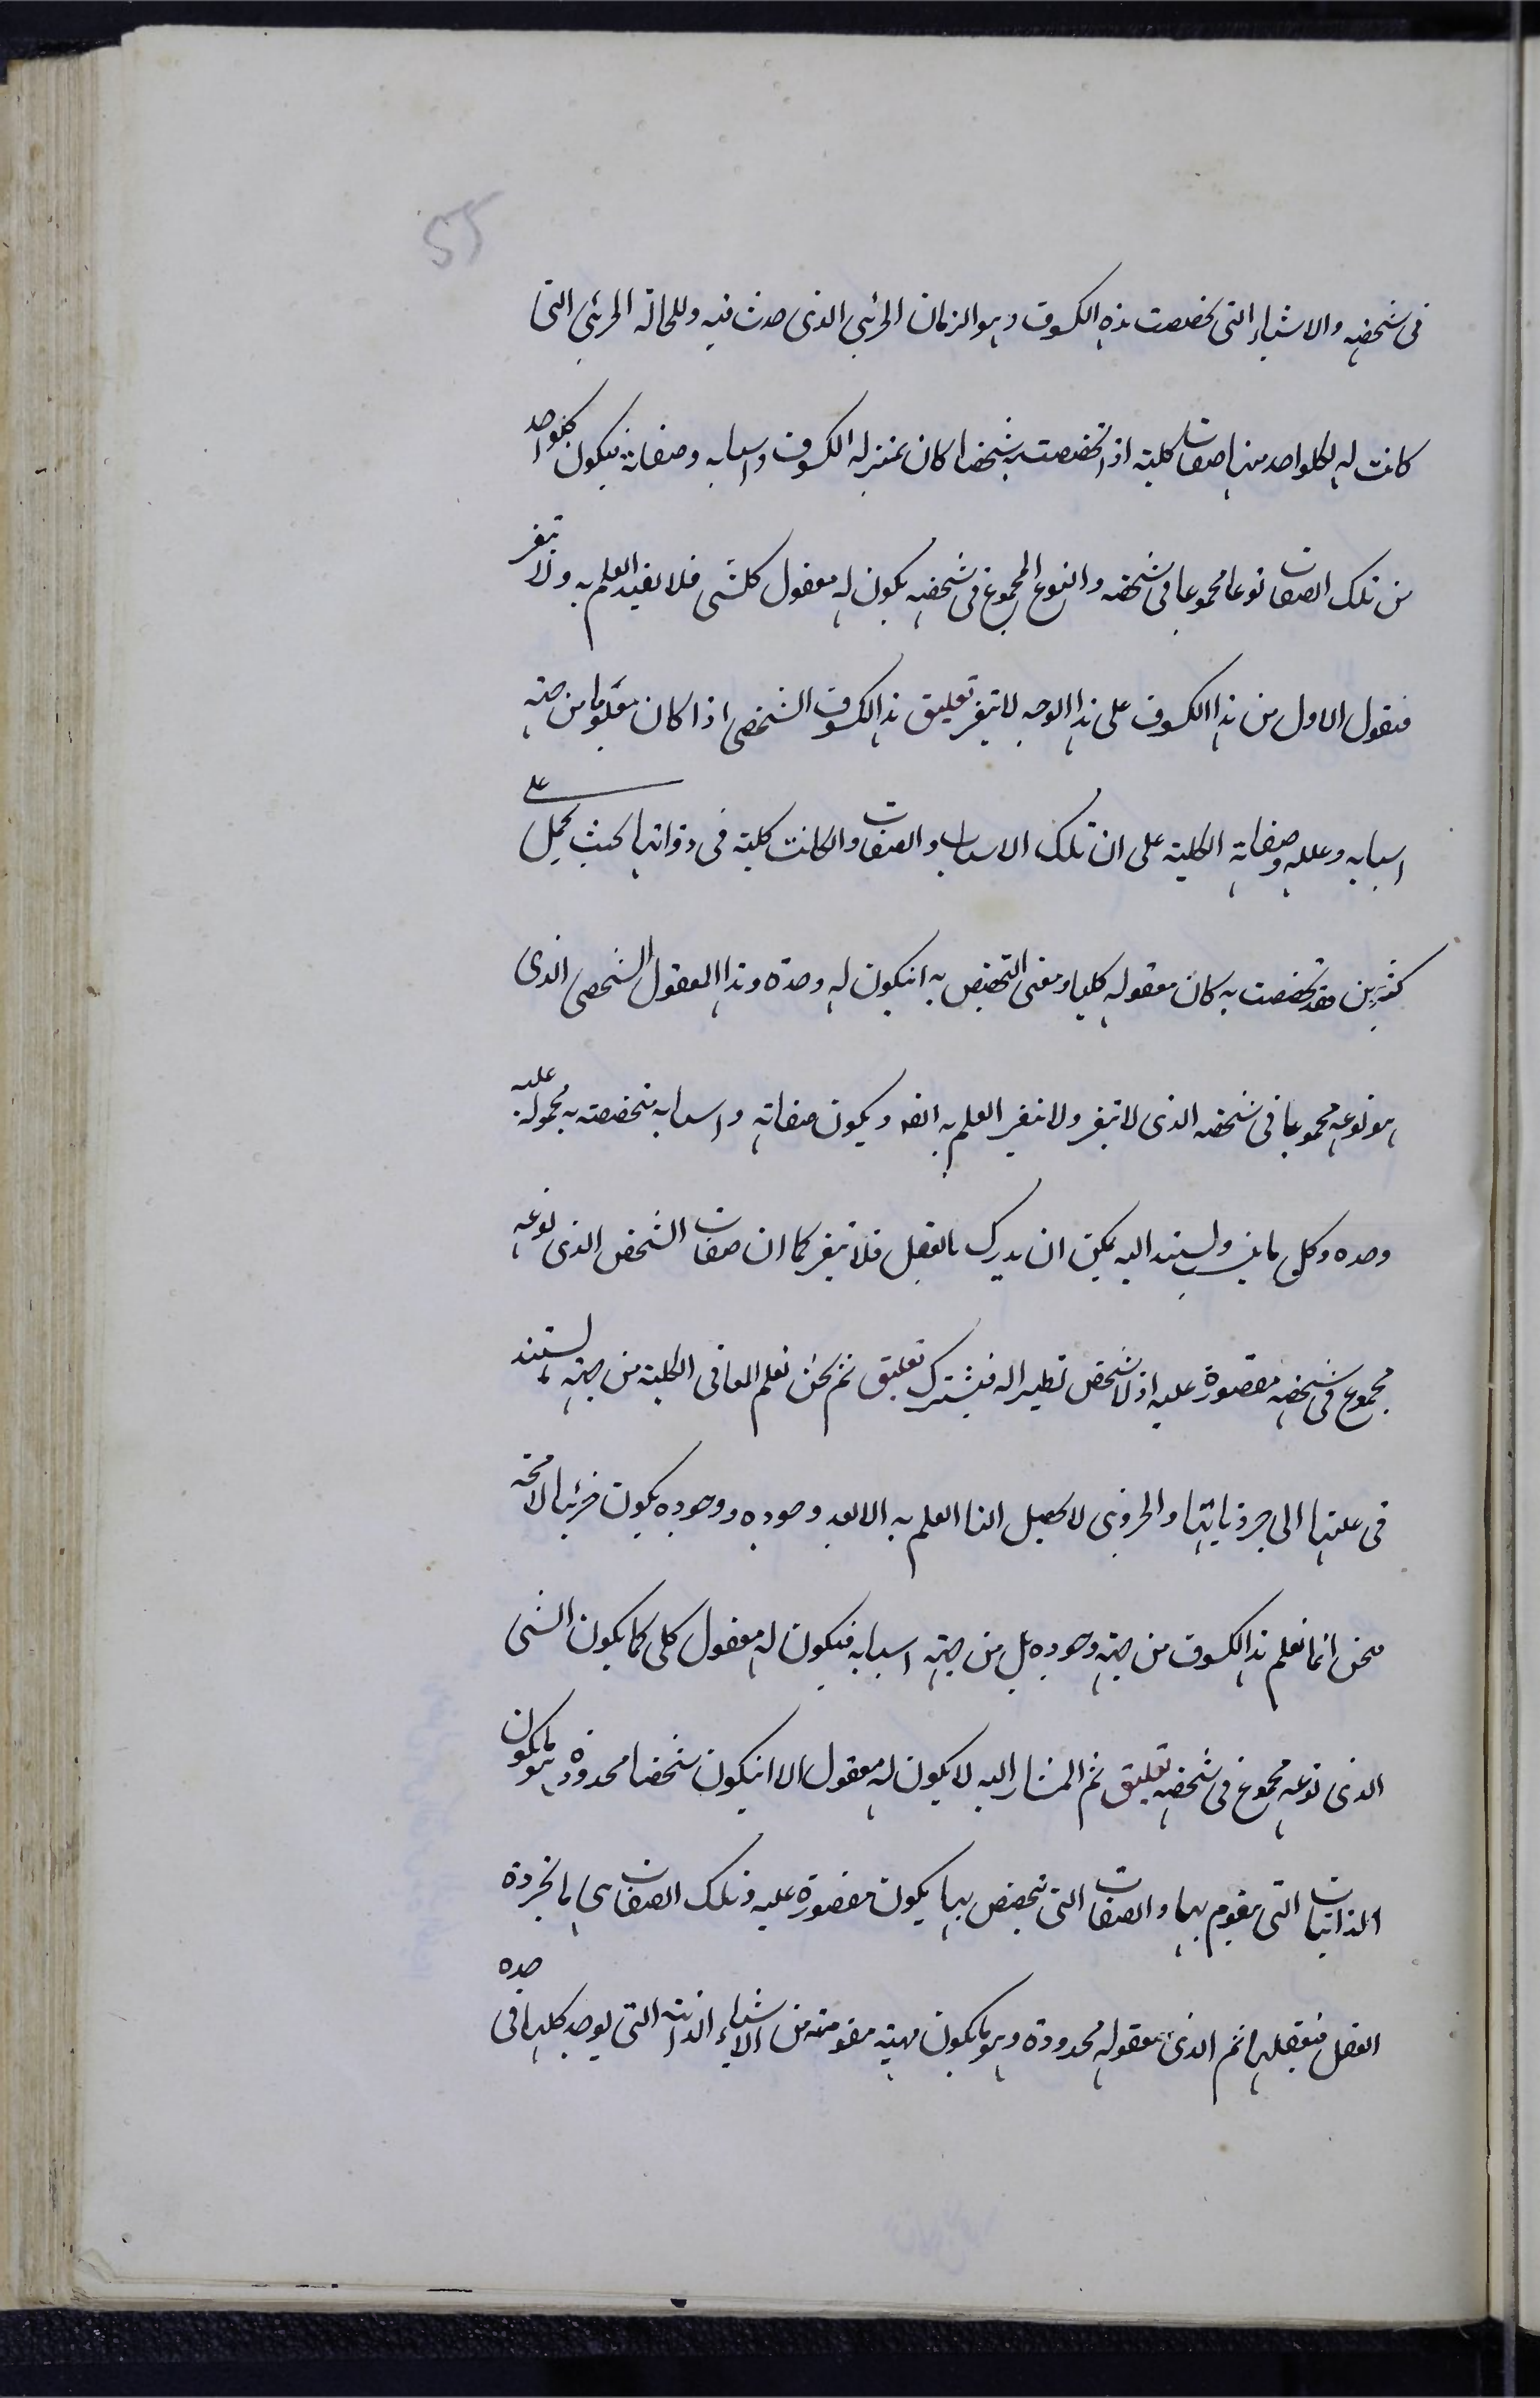 55
فى شخصه والاشياء التى تخصصت هذه الكسوف وهو الزمان الجزئى الذى حدث فيه وللحالة الجزئى التى
كانت له لكلواحد منها صفات كلية اذا تخصصت به شخصا كان بمنزلة الكسوف واسبابه وصفاته فيكون كلواحد
من تلك الصفات نوعا مجموعا فى شخصه والنوع المجموع فى شخصه يكون له معقول كلى فلا يفيد العلم به ولا تغير
فنقول الاول من هذا الكسوف على هذا الوجه لا تغير تعليق هذا الكسوف الشخصى اذا كان معلوما من جهة
اسبابه وعلله وصفاته الكلية على ان تلك الاسباب والصفات والكانت كلية فى ذواتها بحيث يحمل على
كثيرين فقد تخصصت به كان معقوله كليا ومعنى التخصيص به انيكون له وحده وهذا المعقول الشخصى الذى
هو نوعه مجموعا فى شخصه الذى لا تغير ولا تغير العلم به ايضا ويكون صفاته واسبابه متخصصة به محمولة عليه
وحده وكل ما ينسب ويستند اليه يمكن ان يدرك بالعقل فلا تغير كما ان صفات الشخص الذى نوعه
مجموع فى شخصه مقصورة عليه اذ لا شخص نظير اله فيشترك تعليق ثم نحن نعلم المعانى الكلية من جهة ما يستند
فى علتها الى جزوياتها والجزوى لا يحصل لنا العلم به الا بعد وجوده ووجوده يكون جزئيا لا محة
فنحن انما نعلم هذا الكسوف من جهة وجوده بل من جهة اسبابه فيكون له معقول كلى كما يكون الشى
الذى نوعه مجموع فى شخصه تعليق ثم المشار اليه لا يكون له معقول الا انيكون شخصا محدودة وهو ما يكون
الذاتيات التى يقوم بها والصفات التى تخصص بها يكون مقصورة عليه وتلك الصفات هى ما تجرده
العقل فيعقلها ثم الذى معقوله محدودة وهو ما يكون مهيته مقومة من الاشياء الذاتية التى يوجد كلها فى حده